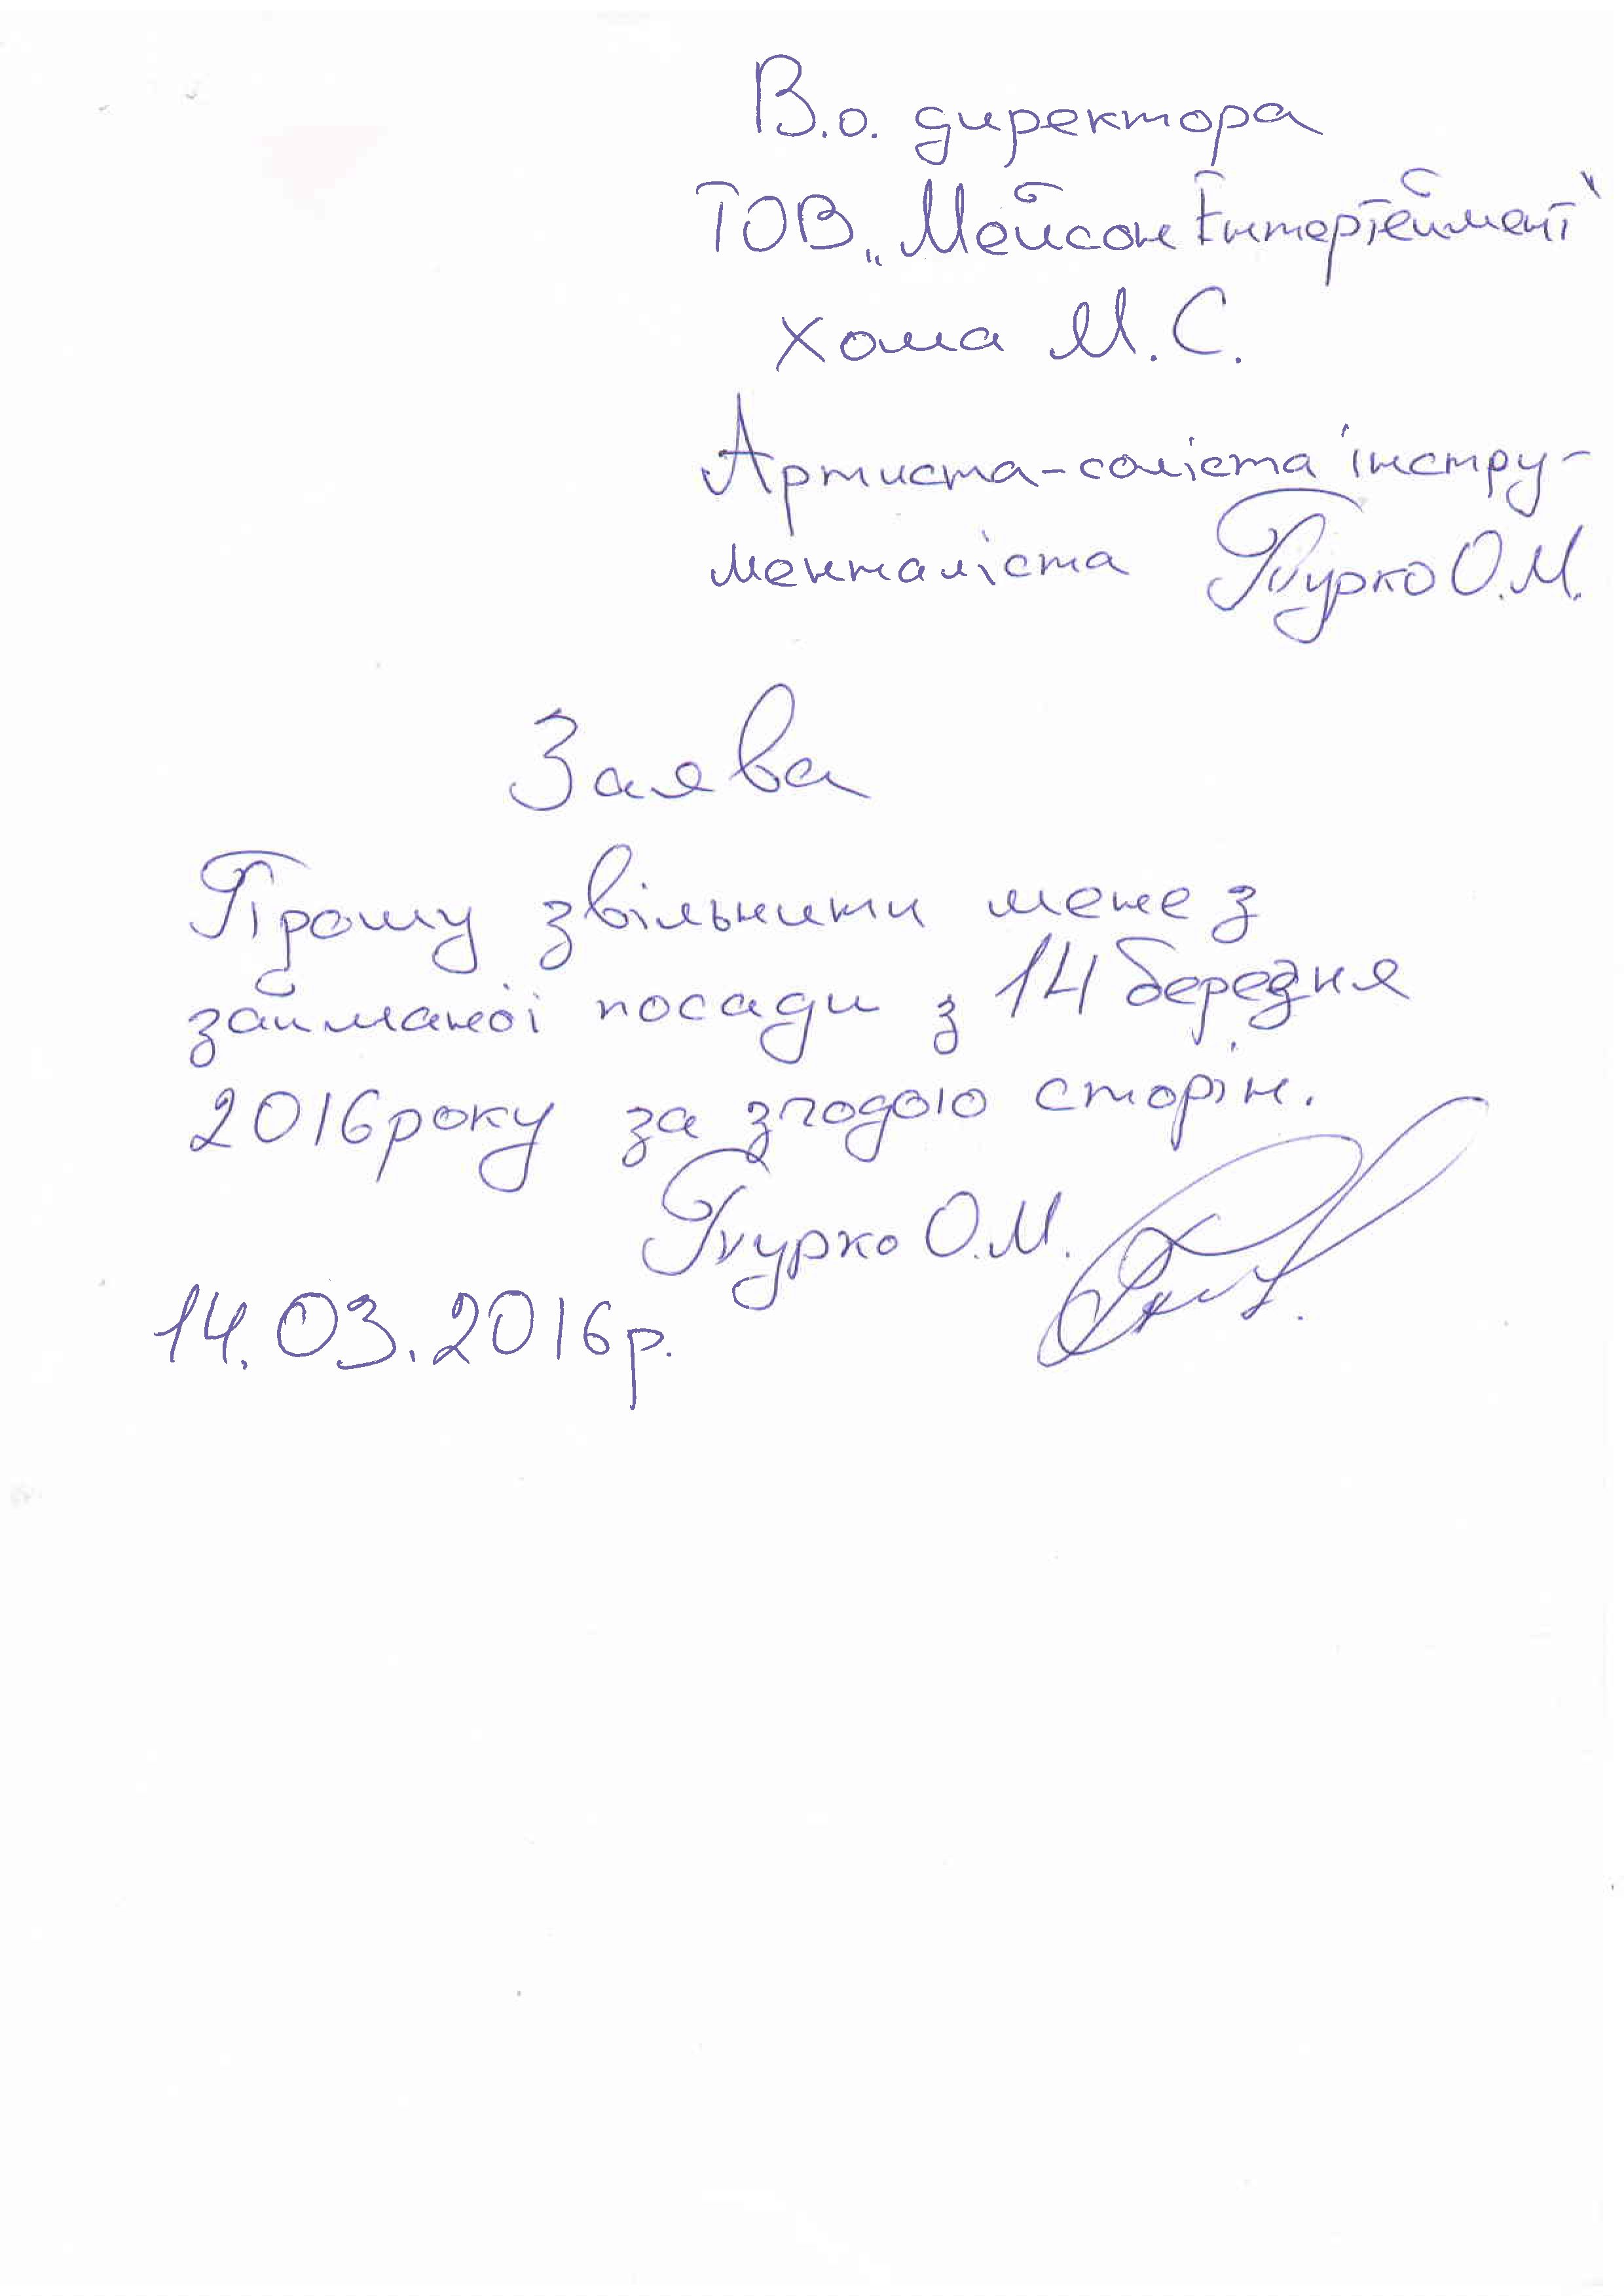 В.о. директора
ТОВ „Мейсон Ентертеймент"
Хома М.С.
Артиста-соліста інстру-
менталіста Турко О.М.
Заява
Прошу звільнити мене з
займаної посади з 14 березня
2016 року за згодою сторін.
Турко О.М.
14.03.2016р.